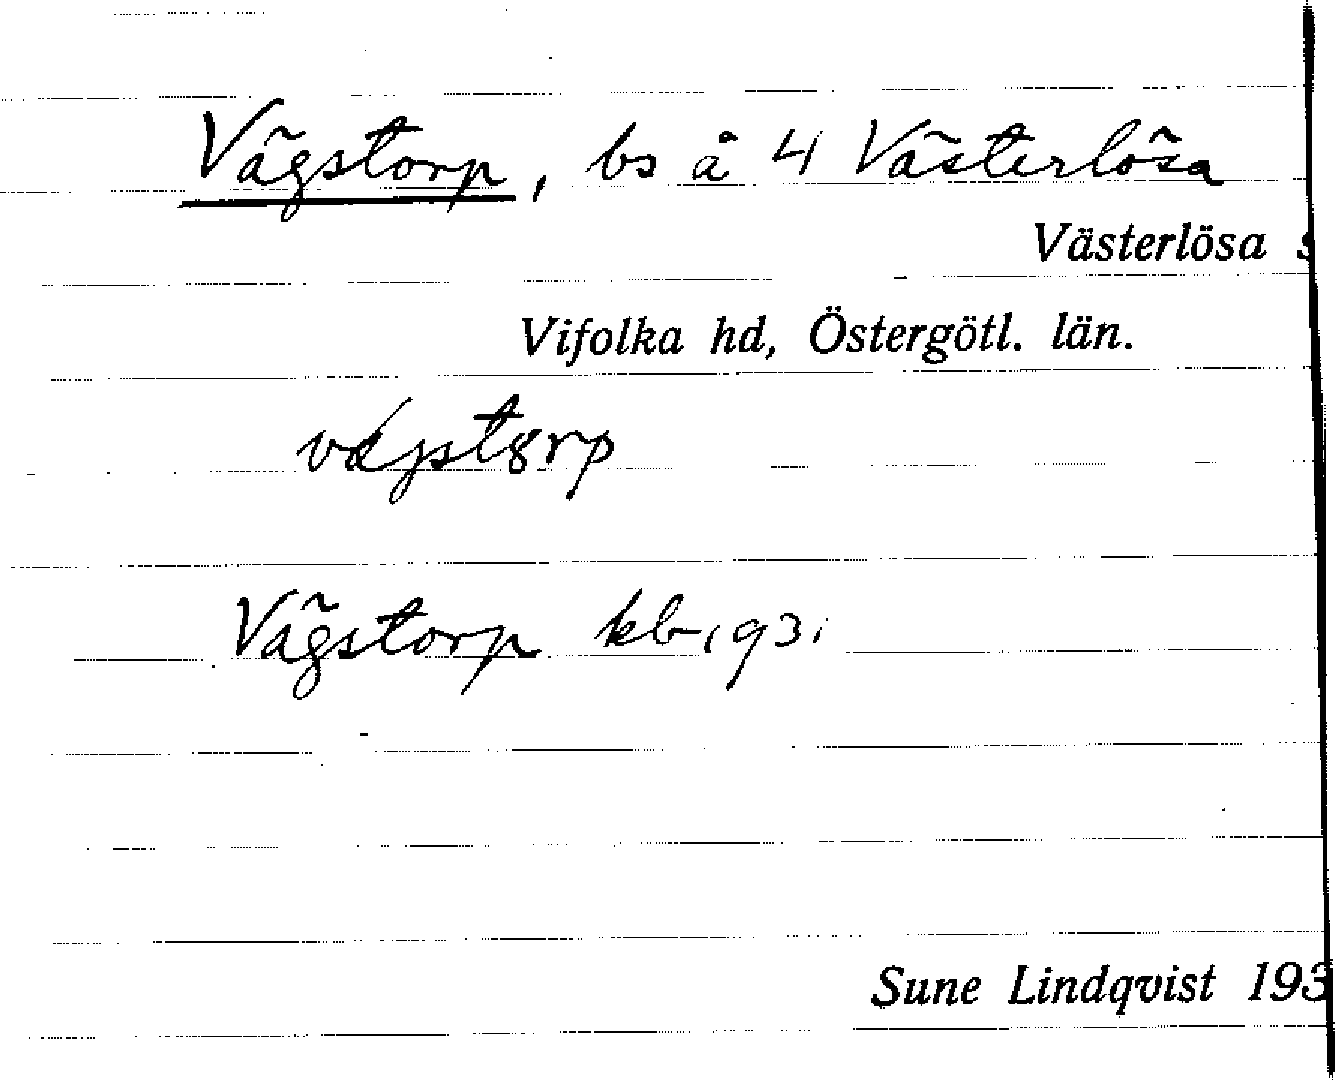 Vägstorp, bs å 4 Västerlösa
Västerlösa s
Vifolka hd, Östergötl. län.
Vägstorp kb 1931
Sune Lindqvist 193